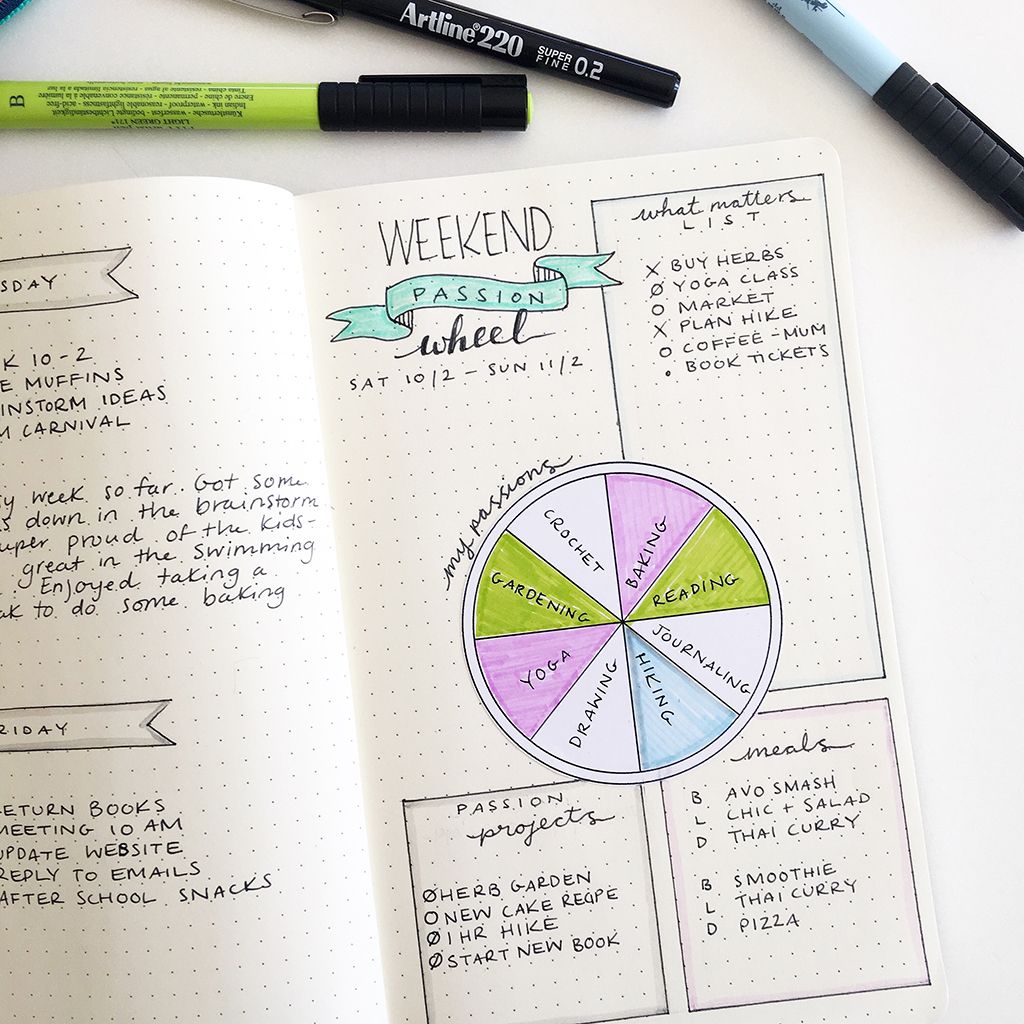 Artline®220
SUPER
FINE 0.2
B
LIGHT GREEN 171*
SDAY
K 10-2
E MUFFINS
INSTORM IDEAS
M CARNIVAL
y week so far. Got some
s down in the brainstorm
uper proud of the kids-
great in the swimming
. Enjoyed taking a
ak to do some baking
RIDAY
RETURN BOOKS
MEETING 10 AM
UPDATE WEBSITE
REPLY TO EMAILS
AFTER SCHOOL SNACKS
WEEKEND
PASSION
wheel
SAT 10/2 - SUN 11/2
what matters
LIST
X BUY HERBS
Ø YOGA CLASS
O MARKET
X PLAN HIKE
O COFFEE - MUM
• BOOK TICKETS
my passions
CROCHET
BAKING
READING
JOURNALING
HIKING
DRAWING
YOGA
GARDENING
PASSION
projects
Ø HERB GARDEN
O NEW CAKE RECIPE
Ø 1 HR HIKE
Ø START NEW BOOK
meals
B AVO SMASH
L CHIC + SALAD
D THAI CURRY
B SMOOTHIE
L THAI CURRY
D PIZZA